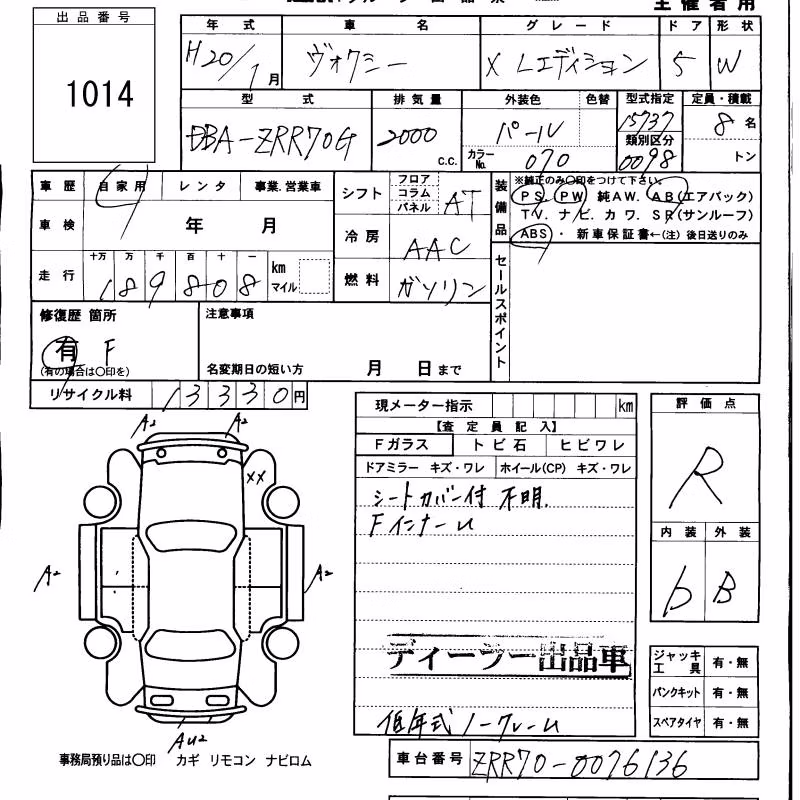 主催者用
出品番号
1014
年式 車名 グレード ドア 形状
H20/1月 ヴォクシー X Lエディション 5 W
型式 排気量 外装色 色替 型式指定 定員・積載
DBA-ZRR70G 2000 c.c. パール 15737 8名
カラーNo. 070 類別区分 0098 トン
車歴 自家用 レンタ 事業.営業車
車検 年 月
走行 十万 万 千 百 十 一 km マイル
189808
シフト フロア コラム パネル AT
冷房 AAC
燃料 ガソリン
装備品 ※純正のみ○印をつけて下さい。
PS. PW 純AW. AB(エアバック)
TV. ナビ. カワ. SR(サンルーフ)
ABS・新車保証書←(注)後日送りのみ
セールスポイント
修復歴 箇所
有 F
(有の場合は○印を)
注意事項
名変期日の短い方 月 日まで
リサイクル料 13330円
現メーター指示 km
【査定員記入】
Fガラス トビ石 ヒビワレ
ドアミラー キズ・ワレ ホイール(CP) キズ・ワレ
シートカバー付 不明.
FインナーU
ディーラー出品車
低年式ノークレーム
車台番号 ZRR70-0076136
評価点
R
内装 外装
b B
ジャッキ工具 有・無
パンクキット 有・無
スペアタイヤ 有・無
A2 A2
XX
A2 A2
AU2
事務局預り品は○印 カギ リモコン ナビロム